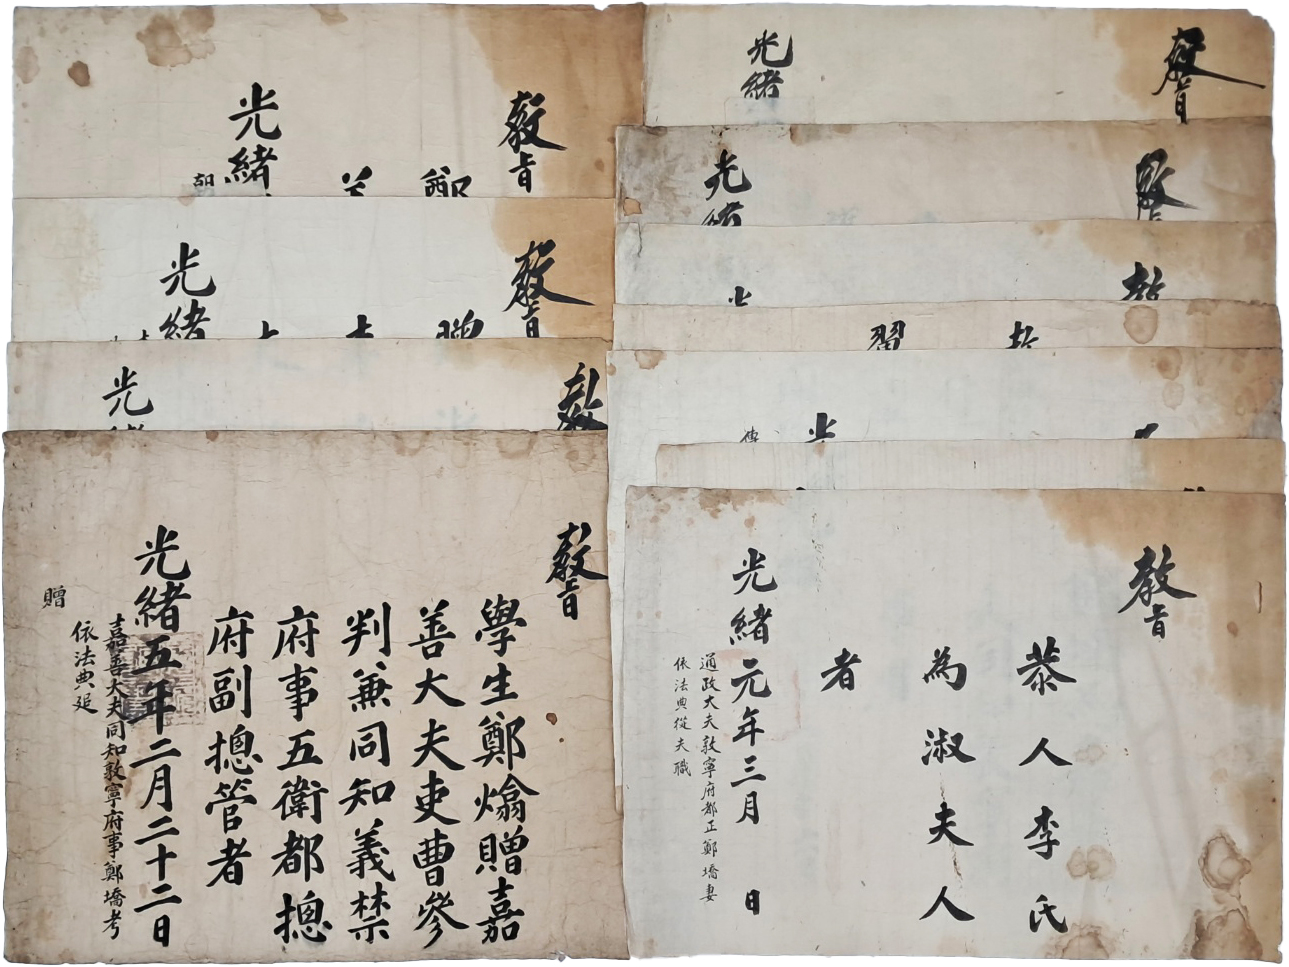 敎旨
光緒
敎
光緒
敎
敎旨
光緒
敎旨
贈
光緒
敎
光
敎旨
恭人李氏
為淑夫人
者
光緒元年三月 日
通政大夫敦寧府都正鄭墧妻
依法典從夫職
敎旨
學生鄭熻贈嘉
善大夫吏曹參
判兼同知義禁
府事五衛都摠
府副摠管者
光緒五年二月二十二日
嘉善大夫同知敦寧府事鄭墧考
依法典追
贈